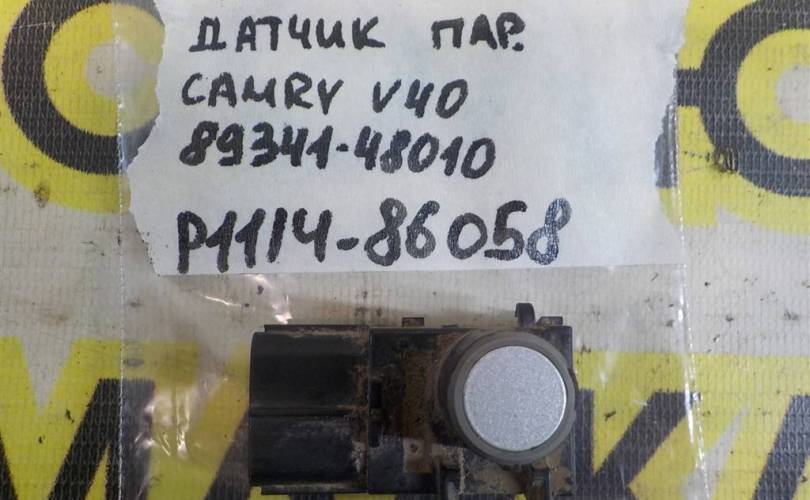 ДАТЧИК ПАР.
CAMRY V40
89341-48010
P11/4-86058